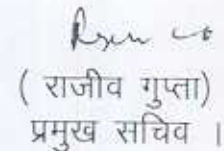 ( राजीव गुप्ता)
प्रमुख सचिव ।